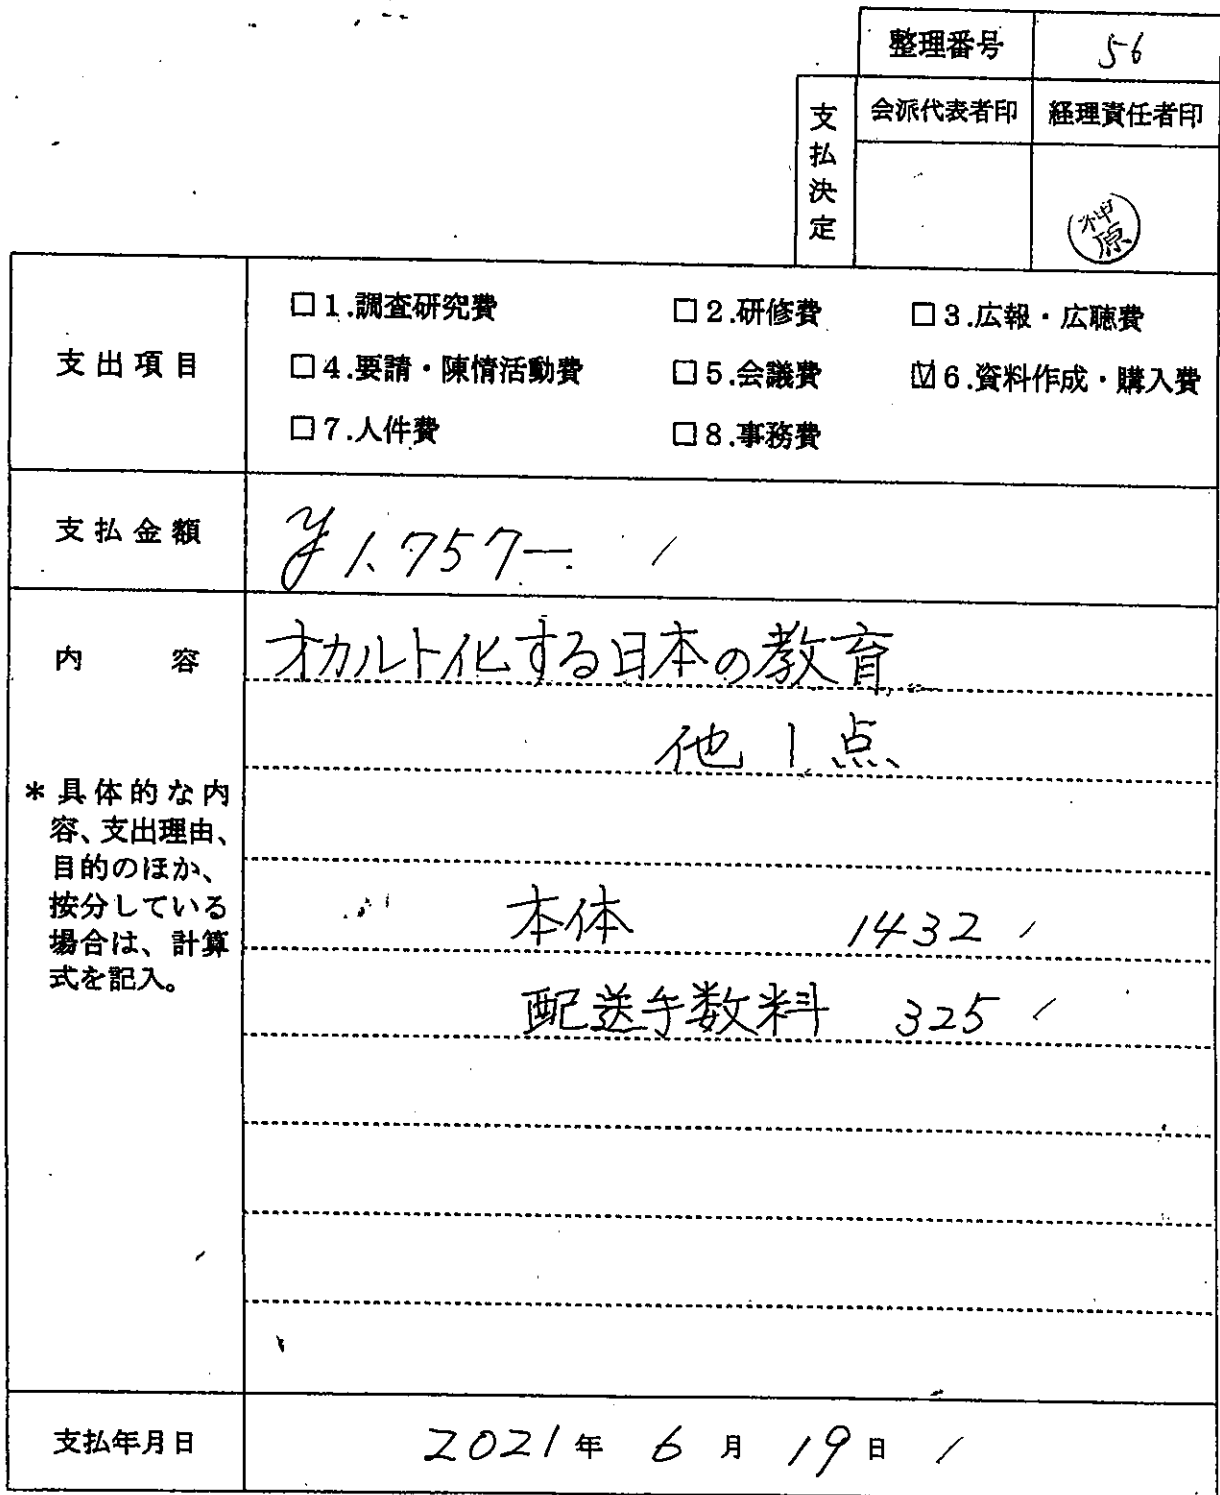 整理番号 56
支払決定
会派代表者印 経理責任者印
神原
支出項目
□1.調査研究費 □2.研修費 □3.広報・広聴費
□4.要請・陳情活動費 □5.会議費 ☑6.資料作成・購入費
□7.人件費 □8.事務費
支払金額 ¥1,757-
内 容 オカルト化する日本の教育
他1点
*具体的な内
容、支出理由、
目的のほか、
按分している
場合は、計算
式を記入。
本体 1432
配送手数料 325
支払年月日 2021年 6月 19日